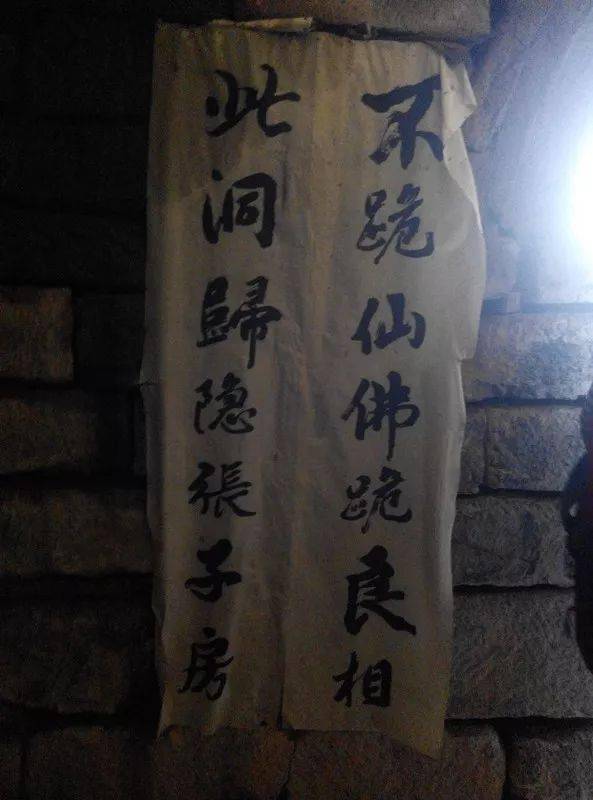 不跪仙佛跪良相
此洞歸隐張子房